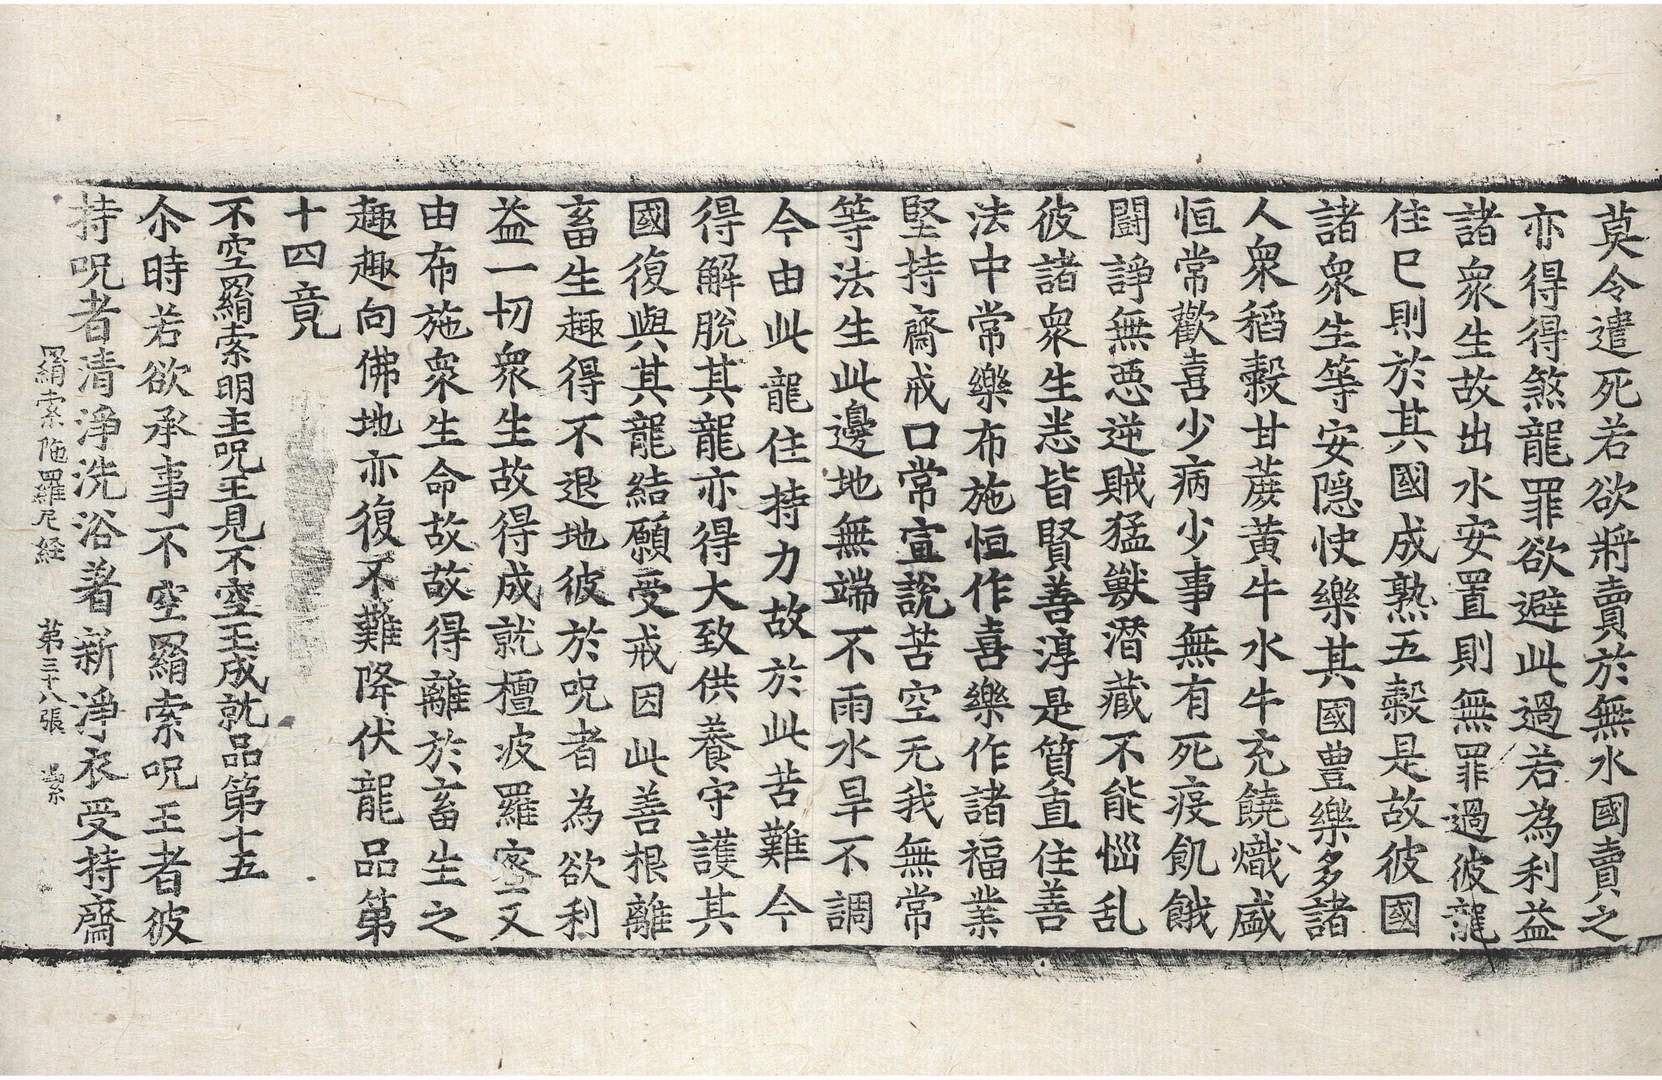 莫令遣死若欲將賣於無水國賣之
亦得得煞龍罪欲避此過若為利益
諸衆生故出水安置則無罪過彼龍
住已則於其國成熟五糓是故彼國
諸衆生等安隠快樂其國豊樂多諸
人衆稻糓甘蔗黄牛水牛充饒熾盛
恒常歡喜少病少事無有死疫飢餓
闘諍無惡逆賊猛獸潛藏不能惱乱
彼諸衆生悉皆賢善淳是質直住善
法中常樂布施恒作喜樂作諸福業
堅持齋戒口常宣說苦空无我無常
等法生此邊地無端不雨水旱不調
今由此龍住持力故於此苦難令
得解脫其龍亦得大致供養守護其
國復與其龍結願受戒因此善根離
畜生趣得不退地彼於呪者為欲利
益一切衆生故得成就檀波羅蜜又
由布施衆生命故故得離於畜生之
趣趣向佛地亦復不難降伏龍品第
十四竟
不空羂索明主呪王見不空王成就品第十五
尒時若欲承事不空羂索呪王者彼
持呪者清淨洗浴著新淨衣受持齋
羂索陁羅尼経 第三十八張